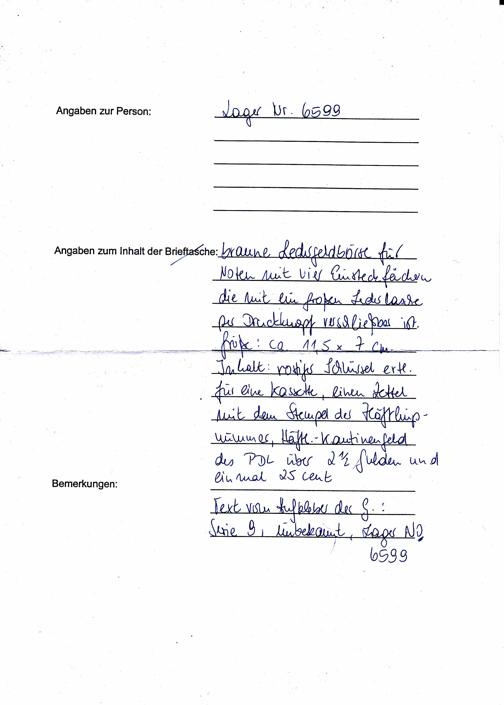 Angaben zur Person: Lager Nr. 6599
Angaben zum Inhalt der Brieftasche: braune Ledergeldbörse für
Noten mit vier Einsteckfächern
die mit ein großen Lederlasche
per Druckknopf verschließbar ist.
Größe: ca 11,5 x 7 cm.
Inhalt: rostiger Schlüssel evtl.
für eine Kassette, einen Zettel
mit dem Stempel der Häftlings-
nummer, Häftl.-Kantinengeld
des PDL über 2 ½ Gulden und
einmal 25 cent
Bemerkungen:
Text vom Aufkleber des G. :
Serie 9, unbekannt, Lager No
6599